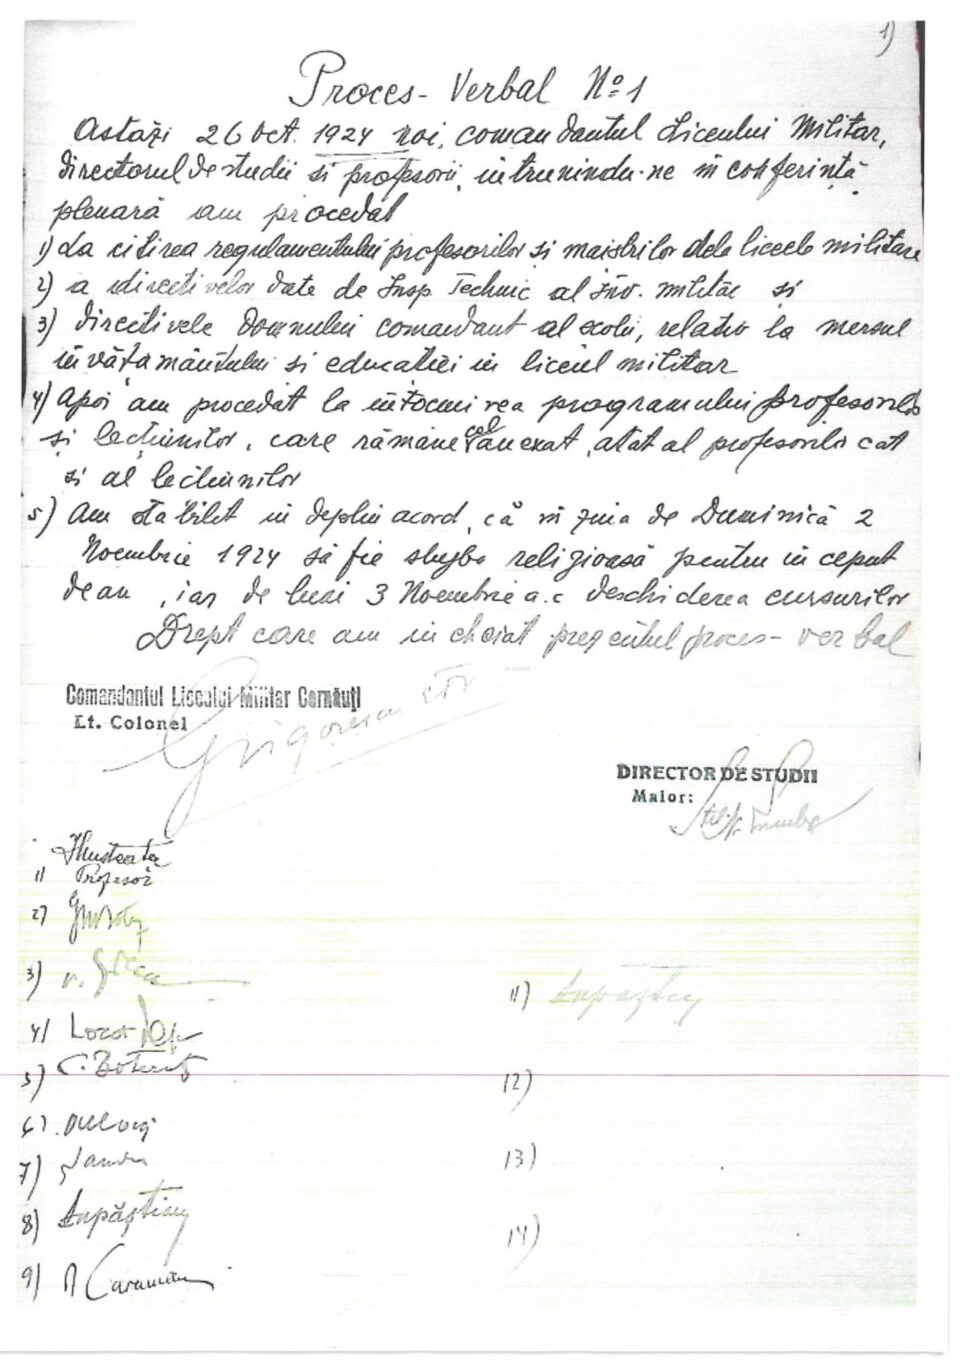 1)
Proces-Verbal No 1
Astăzi 26 Oct. 1924 noi, comandantul Liceului Militar,
directorul de studii si profesorii, intrunindu-ne in conferință
plenară am procedat
1) La citirea regulamentului profesorilor și maiștrilor dela liceele militare
2) a directivelor date de Insp. Technic al Inv. militar si
3) directivele Domnului comandant al scolii, relativ la mersul
invățamântului si educatiei in liceul militar
4) Apoi am procedat la intocmirea programului profesorilor
și lecțiunilor, care rămâne anexat, atât al profesorilor cat
si al lectiunilor
5) Am stabilit in deplin acord, că in ziua de Duminică 2
Noembrie 1924 să fie slujba religioasă pentru inceput
de an, iar de luni 3 Noembrie a.c deschiderea cursurilor
Drept care am incheiat prezentul proces-verbal
Comandantul Liceului Militar Cernăuți
Lt. Colonel
Grigorescu
DIRECTOR DE STUDII
Maior:
1) Profesor
2)
3)
4)
5)
6)
7)
8)
9) Caraman
11)
12)
13)
14)